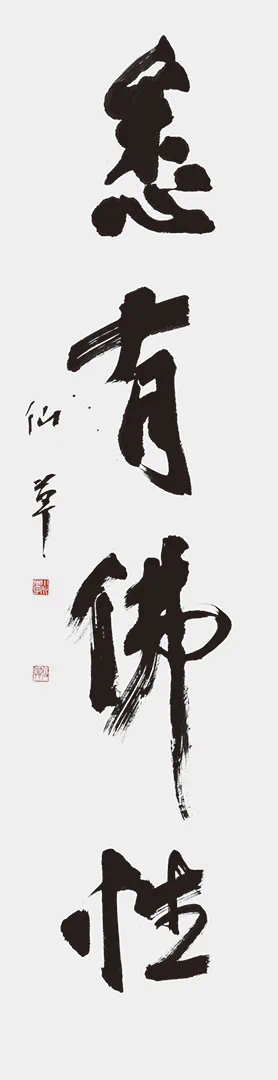 悉有佛性
仙草